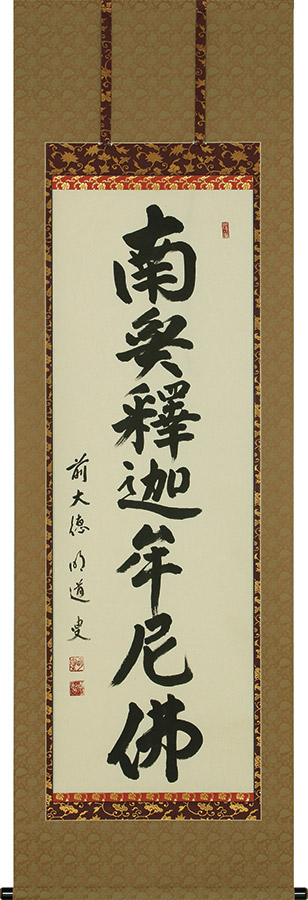 南無釋迦牟尼佛
前大德明道叟